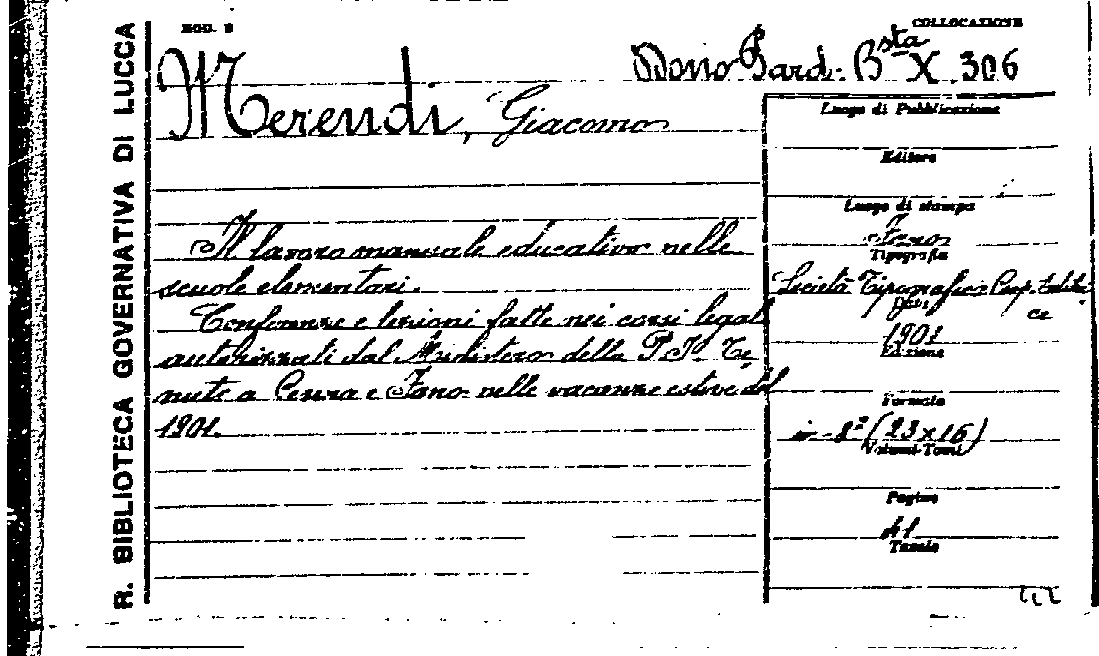 R. BIBLIOTECA GOVERNATIVA DI LUCCA
MOD. B
COLLOCAZIONE
Dono Bard. Bsta X. 306
Merendi, Giacomo
Il lavoro manuale educativo nelle
scuole elementari.
Conferenze e lezioni fatte nei corsi legal
autorizzati dal Ministero della P. I. Te
nute a Cesena e Fano nelle vacanze estive del
1901.
Luogo di Pubblicazione
Editore
Luogo di stampa
Fano
Tipografia
Società Tipografica Coop. Editri
ce
Data
1901
Edizione
Formato
in-8° (23x16)
Volumi-Tomi
Pagine
41
Tavole